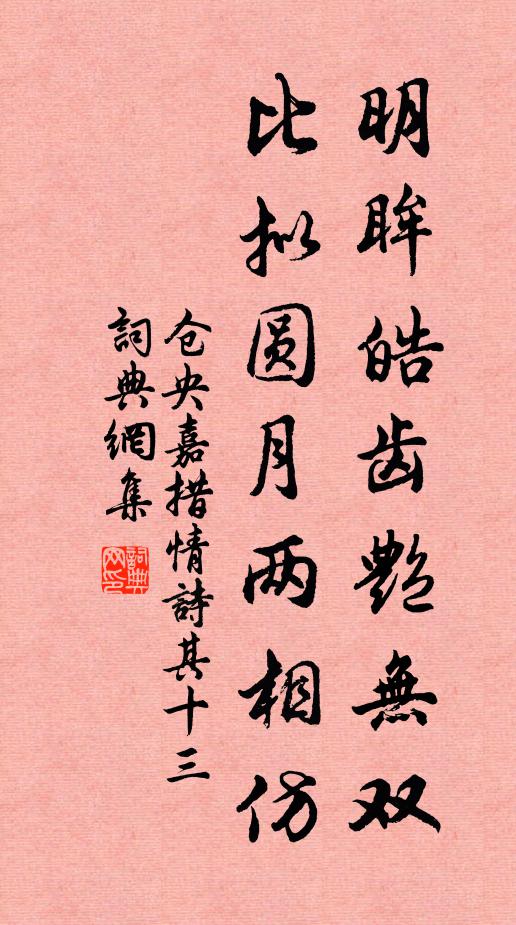 明眸皓齿艷無双
比拟圆月两相仿
仓央嘉措情詩其十三
詞典網集
詞典网印